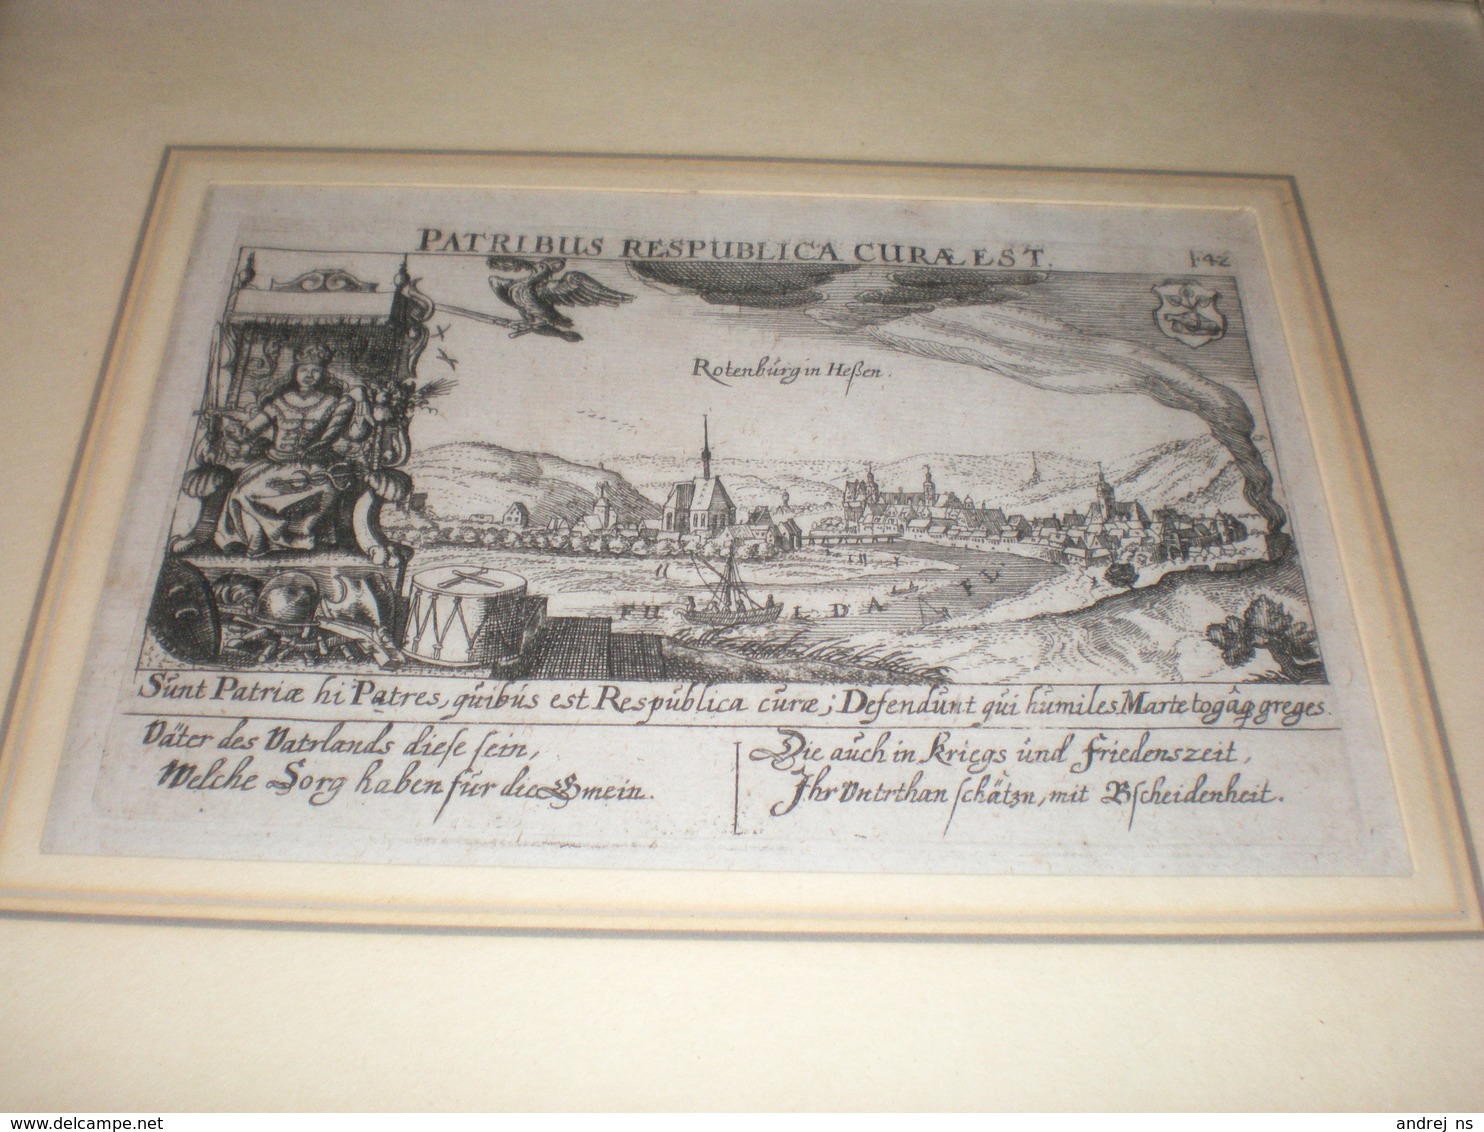 PATRIBUS RESPUBLICA CURÆ EST.
F42
Rotenbürg in Heßen.
FULDA FL.
Sünt Patriæ hi Patres, qüibüs est Respüblica cüræ; Defendünt qüi hümiles Marte togâq greges.
Väter des Vatrlands dieſe ſein,
Welche Sorg haben für die Gmein.
Die aüch in Kriegs ünd Friedenszeit,
Ihr Vntrthan ſchätzn, mit Bſcheidenheit.
andrej_ns